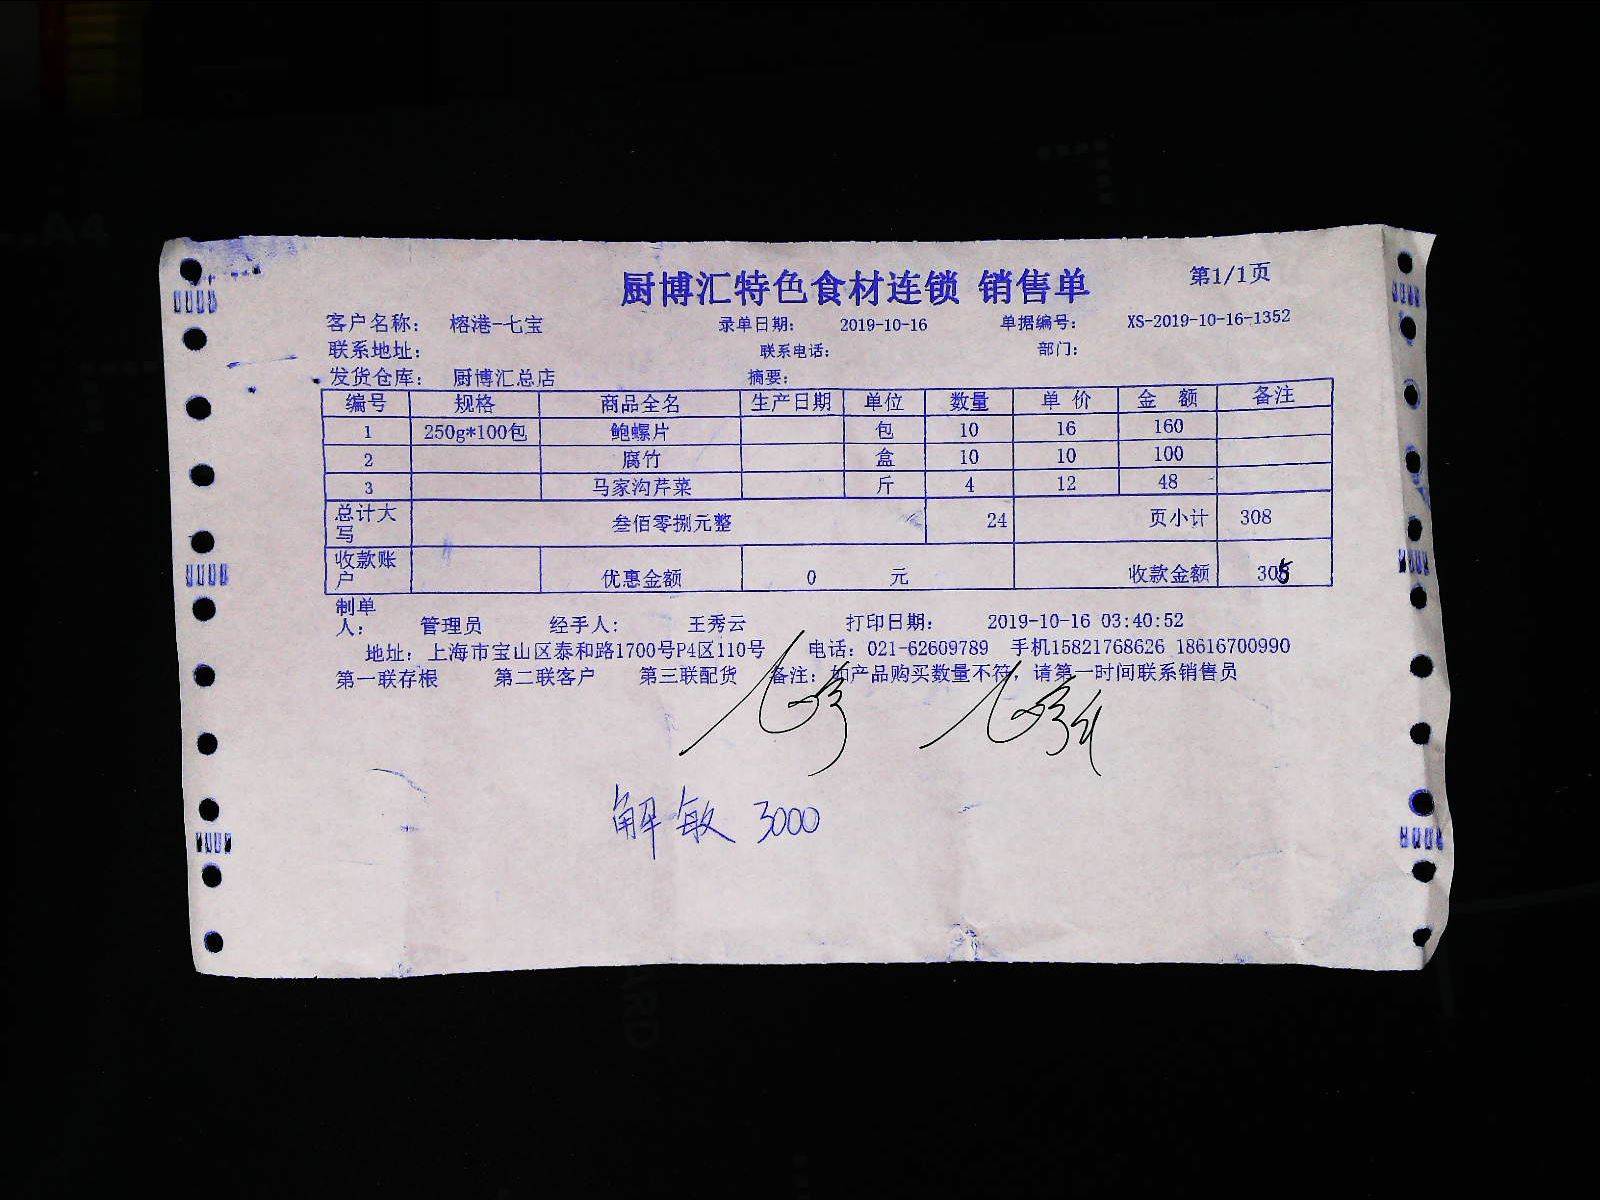 厨博汇特色食材连锁 销售单 第1/1页
客户名称： 榕港-七宝 录单日期： 2019-10-16 单据编号： XS-2019-10-16-1352
联系地址： 联系电话： 部门：
发货仓库： 厨博汇总店 摘要：
编号 规格 商品全名 生产日期 单位 数量 单 价 金 额 备注
1 250g*100包 鲍螺片 包 10 16 160
2 腐竹 盒 10 10 100
3 马家沟芹菜 斤 4 12 48
总计大写 叁佰零捌元整 24 页小计 308
收款账户 优惠金额 0 元 收款金额 305
制单人： 管理员 经手人： 王秀云 打印日期： 2019-10-16 03:40:52
地址：上海市宝山区泰和路1700号P4区110号 电话：021-62609789 手机15821768626 18616700990
第一联存根 第二联客户 第三联配货 备注：如产品购买数量不符，请第一时间联系销售员
解敏 3000